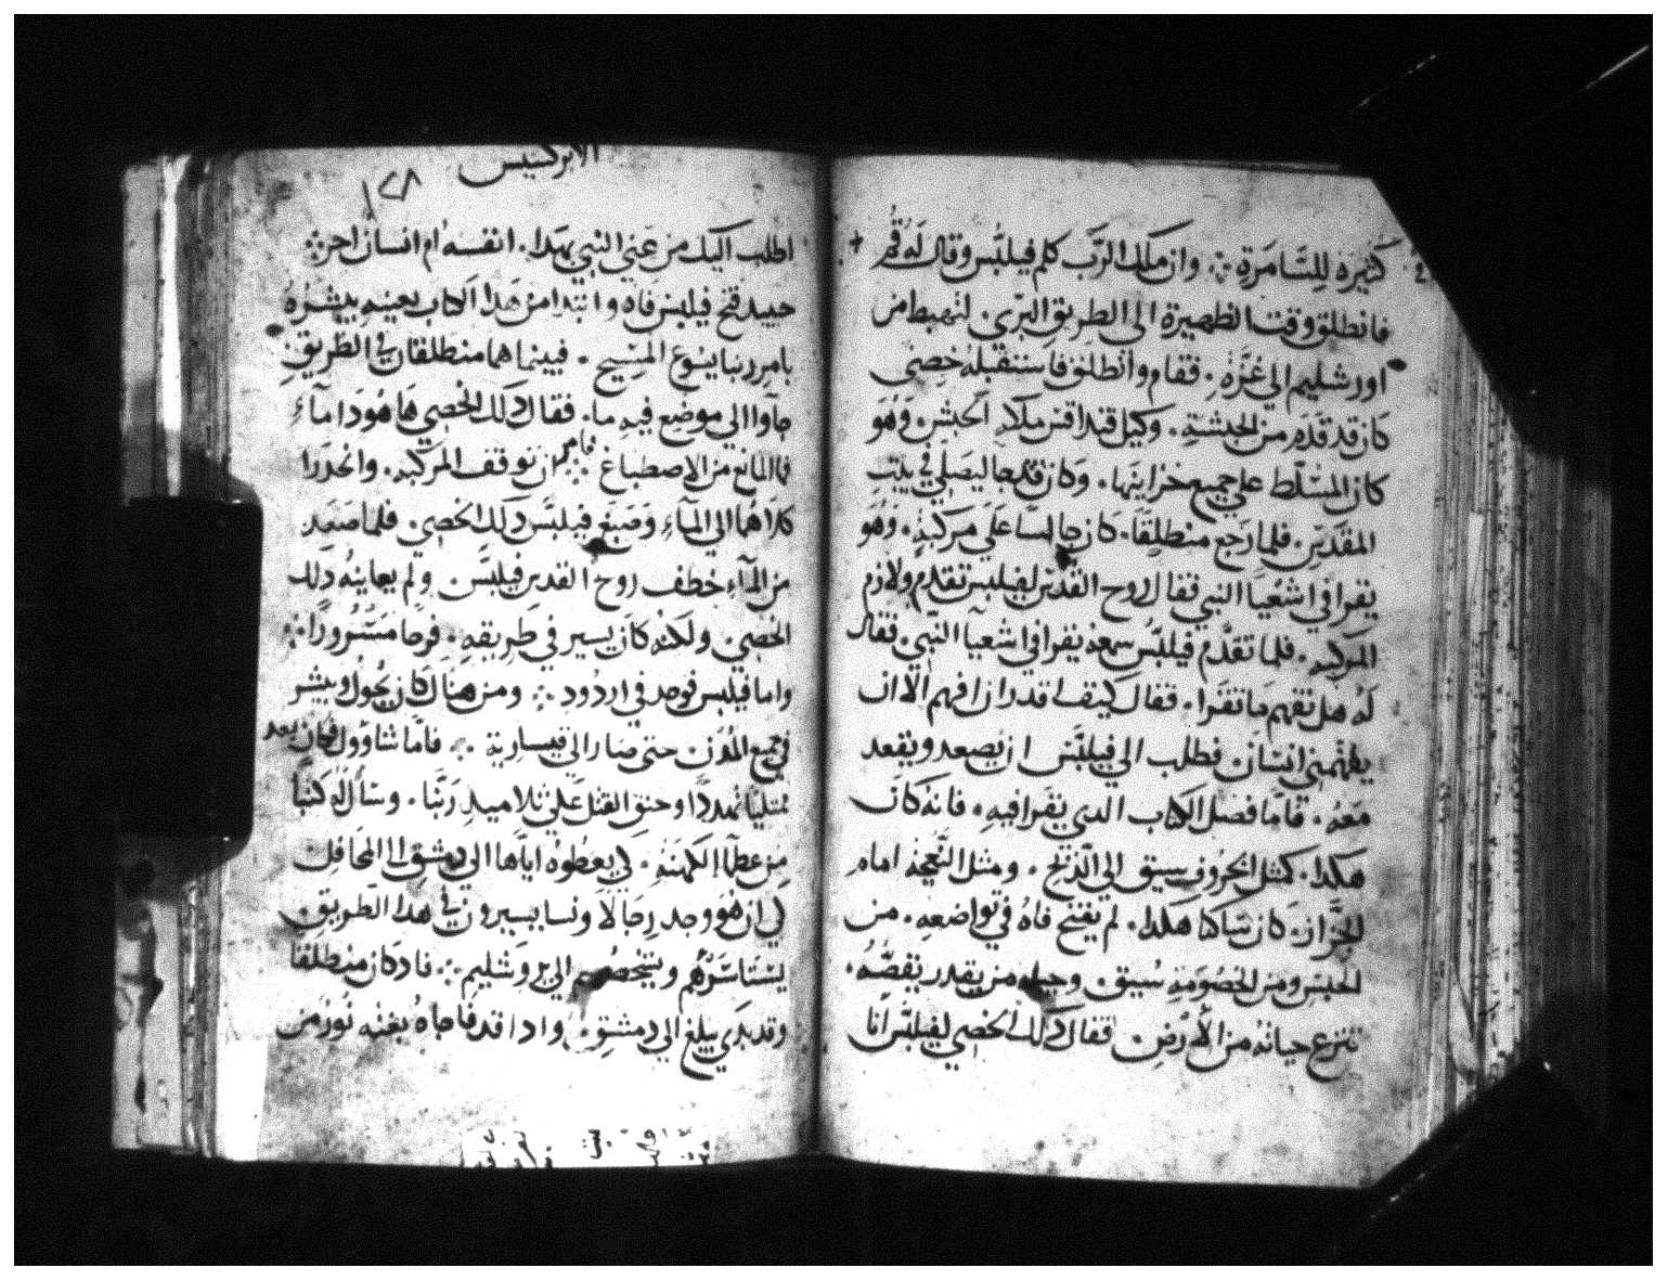 كثيره للسامرة ܀ وان ملاك الرَّب كلم فيلبُّس وقال لَه قُم
فانطلق وقت الظهيرة الى الطريق البرّي. لتهبط من
اورشليم الي غزَّه. فقام وانطلق فاستقبله خصِى
كان قد قدم من الحبشة. وكيل قنداقس ملكة الحبش. وَهو
كان المسَلّط علي جميع خزاينها. وَكان قد جا ليصَلي في بيت
المقدس. فلما رَجع منطلِقًا. كان جالسًا علَى مركبه. وَهو
يقرا في اشعيا النبي فقال روح القدس لفيلبس تقدم ولازم
المركبه. فلما تقدَّم فيلبُّس سمعه يقرا في اشعيآ النّبي. فقال
لَه هل تفهم ما تقرا. فقال كيف اقدر ان افهم الا ان
يفهمني انسان. فطلب الي فيلبَّس ان يصعد ويقعد
معَه. فامّا فصل الكتاب الدي يقرا فيهِ. فانه كان
هكدا. كمثل الخروف سيق الي الذّبح. ومثل النَّعجة امام
الجزَّاز. كان ساكتا هكدا. لم يفتح فاهُ في تواضعهِ. من
الحبس ومن الخصُومَة سُيق. وجيله من يقدر يقصُّه.
تنزع حياته من الأرض. فقال دلك الخصي لفيلبّس انا
الابركسيس
١٢٨
اطلب اليك من عني النبي بهدا. انفسهُ ام انسان اخر ܀
حينيد فتح فيلبس فاه وابتدا من هدا الكتاب بعينهِ يبشرهُ
بامر ربنا يسَوع المسِيح. فبينما هما منطلقان في الطريق
جآوا الي موضع فيهِ ما. فقال دلك الخصي ها هُودا مآء
فما المانع من الاصطباغ ܀ فامر ان توقف المركبه. وانحدَرا
كلاهُما الي المآء وَصَبغ فيلبَّس دلك الخصي. فلما صَعد
من المآء خطف روح القدس فيلبَّس. ولم يعاينه دلك
الخصي. ولكنه كان يسير في طريقهِ. فرحًا مَسْرُورًا ܀
واما فيلبس فوجد في اردُود ܀ ومن هناك كان يجُول ويبشر
في جميع المدُن. حتى صَار الي قيسارية ܀ فامّا شاؤول فكان بعد
ممتليًا تهددًا وحنق القتل علي تلاميد ربّنا. وسَأل له كتبًا
من عظما الكهَنةِ. كي يعطوهُ اياها الي دمشق الي المحَافل
كي ان هُو وجد رجَالاً ونسا يسيرون في هدا الطَريق.
يستَاسَرَهُم ويشخصُهم الي يروشليم ܀ فاد كان منطلقا
وقد بدَي يبلغ الي دمشق. وادا قد فاجاهُ بغته نُور من